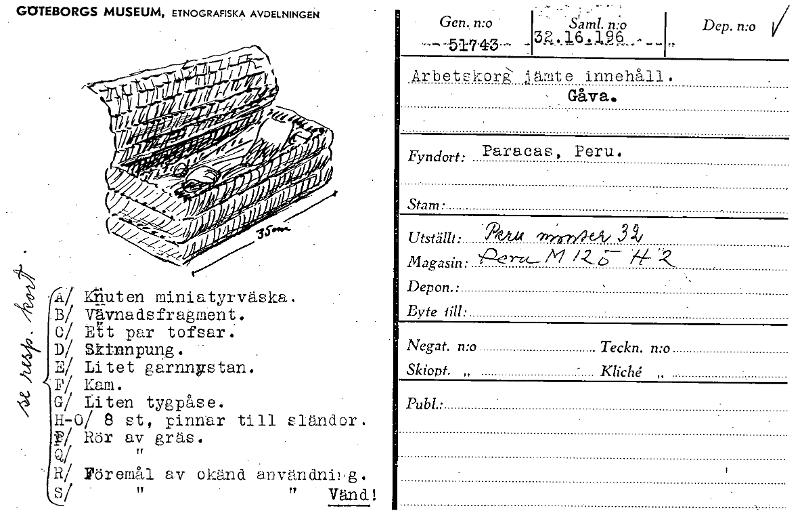 GÖTEBORGS MUSEUM, ETNOGRAFISKA AVDELNINGEN
35cm
se resp. kort.
A/ Knuten miniatyrväska.
B/ Vävnadsfragment.
C/ Ett par tofsar.
D/ Skinnpung.
E/ Litet garnnystan.
F/ Kam.
G/ Liten tygpåse.
H-O/ 8 st, pinnar till sländor.
P/ Rör av gräs.
Q/ "
R/ Föremål av okänd användning.
S/ " " Vänd!
Gen. n:o Saml. n:o Dep. n:o
51743 32.16.196 "
Arbetskorg jämte innehåll.
Gåva.
Fyndort: Paracas, Peru.
Stam:
Utställt: Peru monter 32
Magasin: Peru M 120 H 2
Depon.:
Byte till:
Negat. n:o Teckn. n:o
Skiopt. „ Kliché „
Publ.: